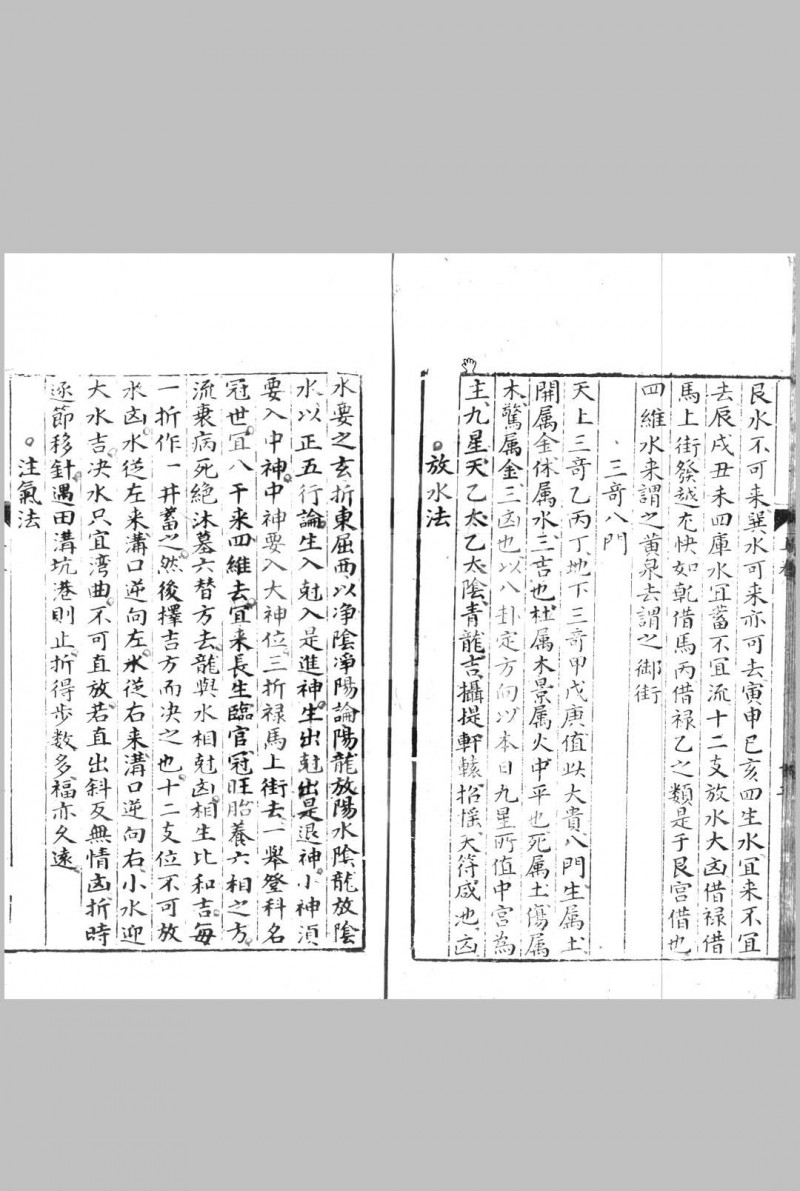 艮水不可来巽水可来亦可去寅申巳亥四生水冝来不冝
去辰戌丑未四庫水冝蓄不冝流十二支放水大凶借禄借
馬上街發越尤快如乾借馬丙借禄乙之類是于艮宫借也
四維水来謂之黄泉去謂之御街
三竒八門
天上三竒乙丙丁地下三竒甲戊庚值此大貴八門生属土
開属金休属水三吉也杜属木景属火中平也死属土傷属
木驚属金三凶也以八卦定方向以本日九星所值中宫為
主九星天乙太乙太陰青龍吉攝提軒轅招摇天符咸池凶
放水法
水要之玄折東屈西以净陰净陽論陽龍放陽水陰龍放陰
水以正五行論生入尅入是進神生出尅出是退神小神湏
要入中神中神要入大神位三折禄馬上街去一舉登科名
冠世冝八干来四維去冝来長生臨官冠旺胎養六相之方
流衰病死絶沐墓六替方去龍與水相尅凶相生比和吉每
一折作一井蓄之然後擇吉方而决之也十二支位不可放
水凶水從左来溝口逆向左水從右来溝口逆向右小水迎
大水吉决水只宜湾曲不可直放若直出斜反無情凶折時
逐節移針遇田溝坑巷則止折得步数多福亦久遠
注氣法